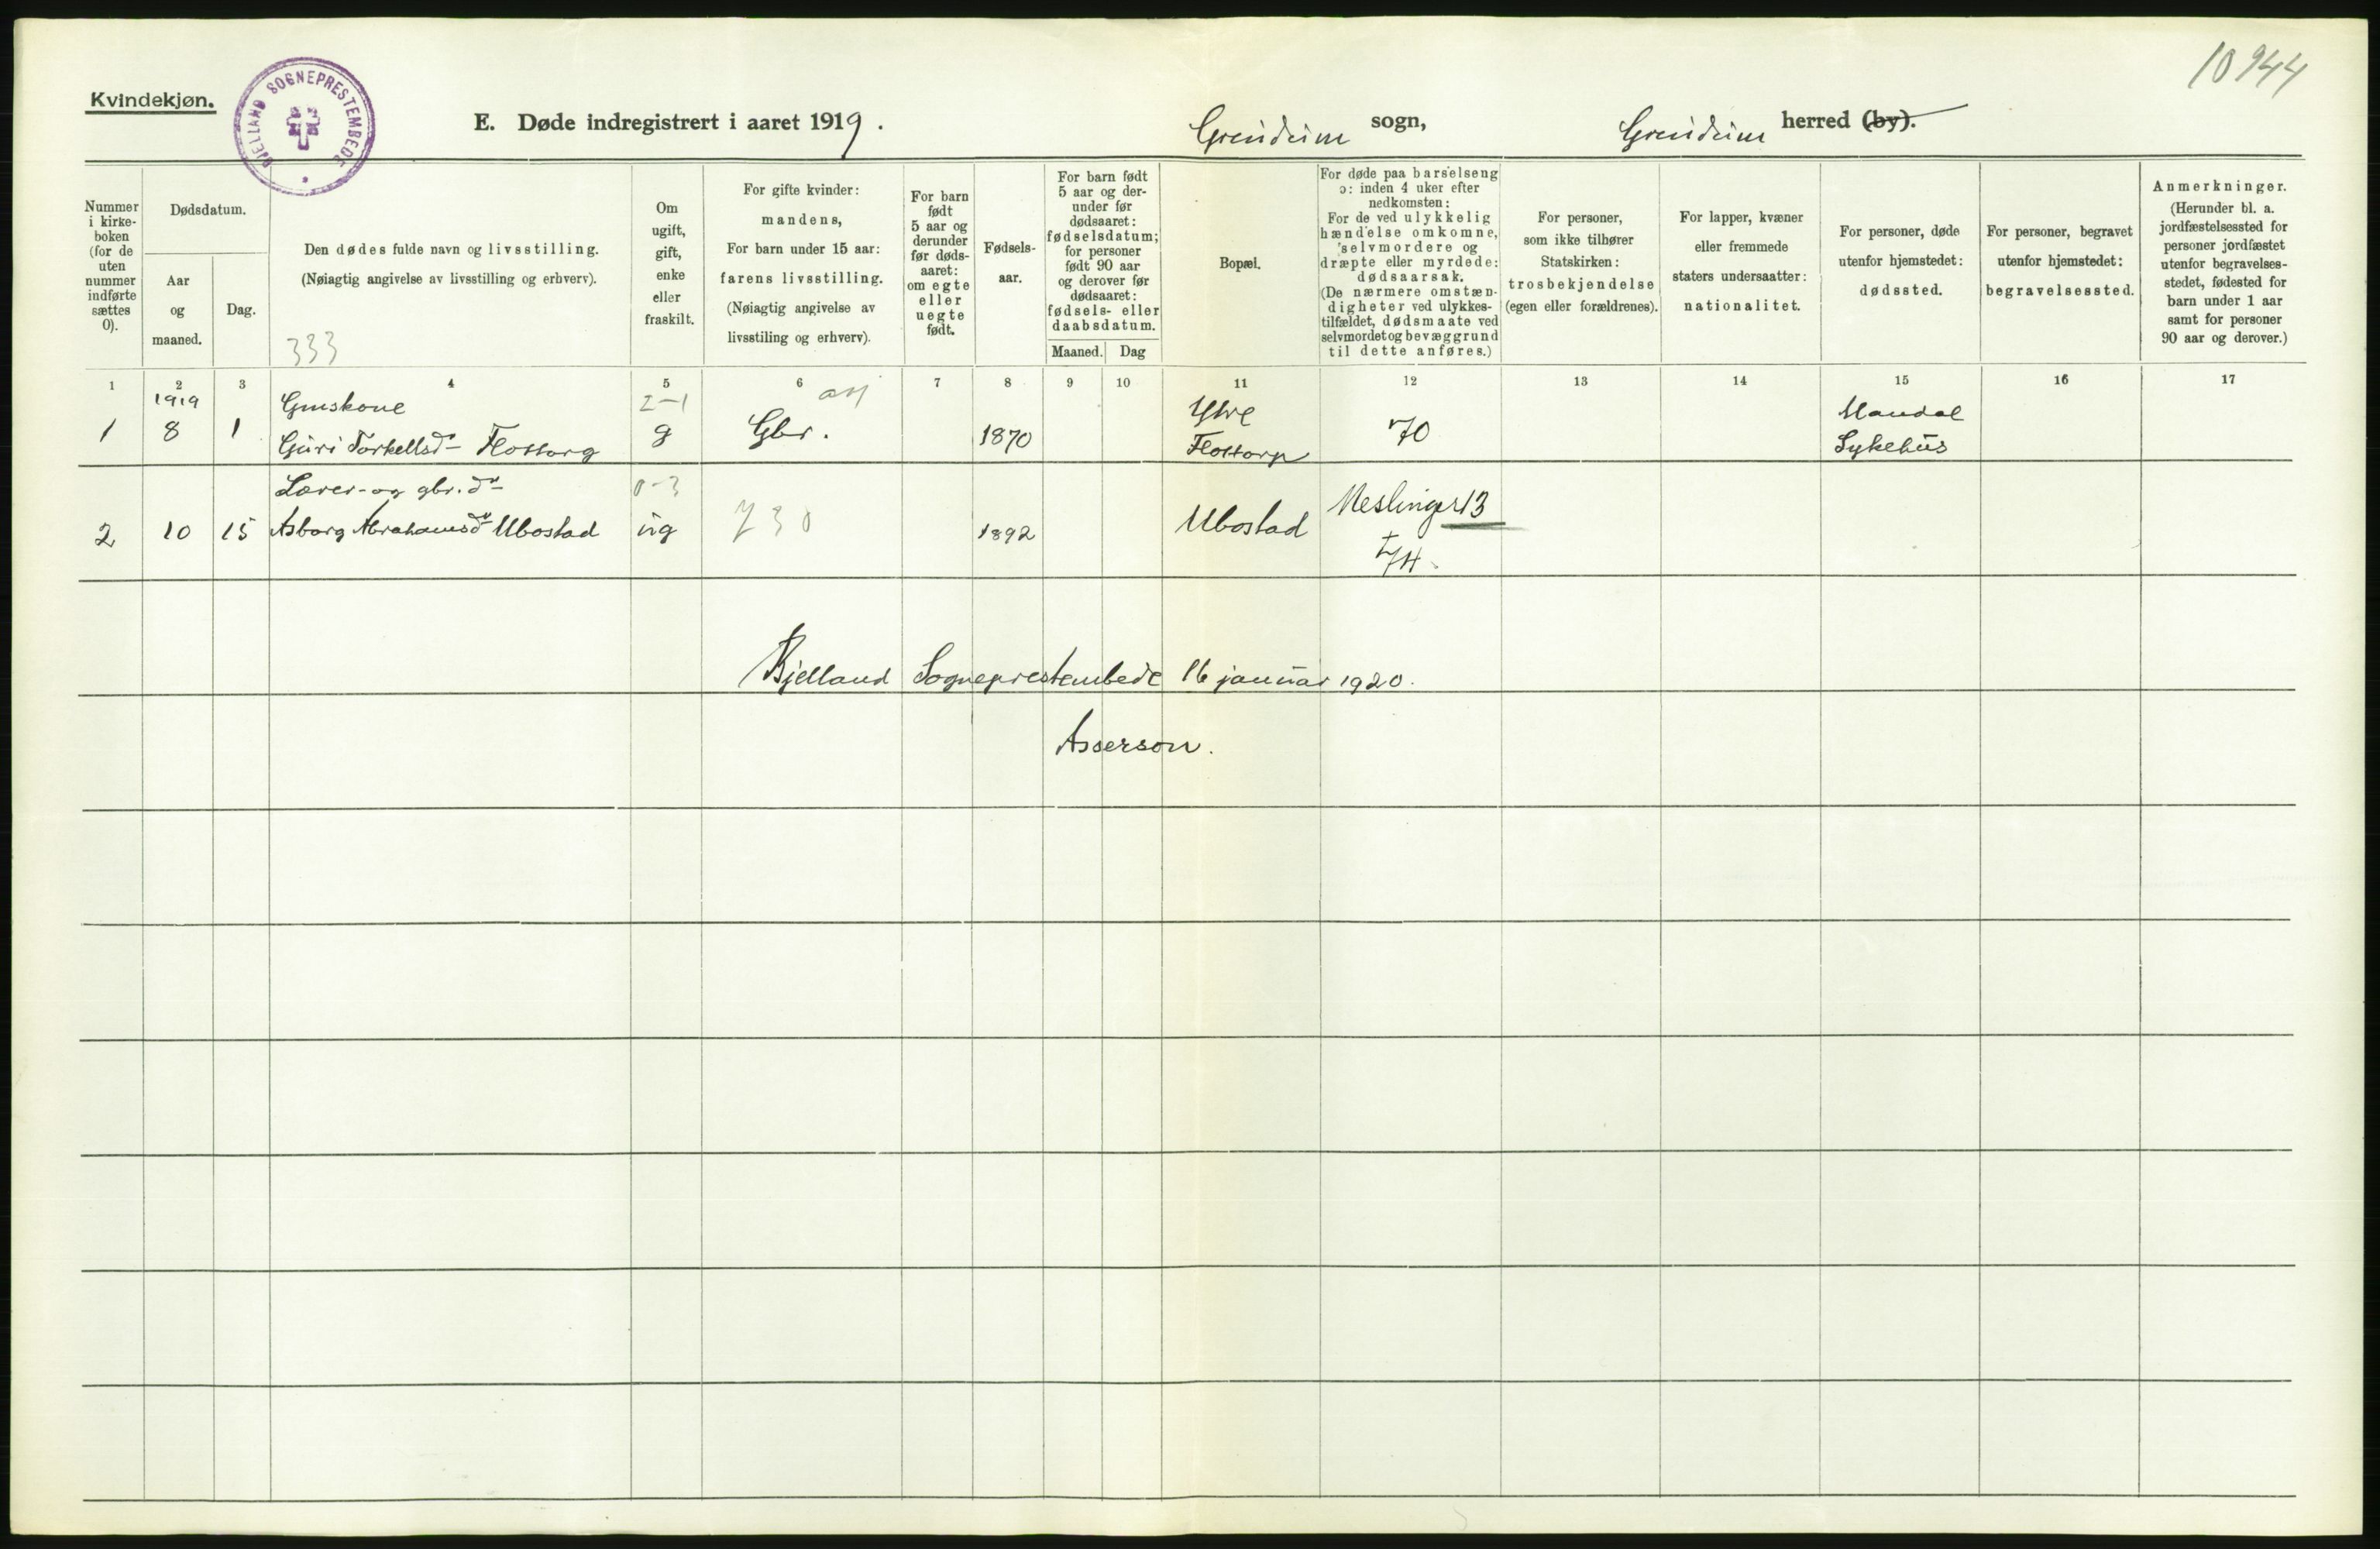 10944
Kvindekjøn.
BJELLAND SOGNEPRESTEMBEDE
E. Døde indregistrert i aaret 1919.
Greindeim sogn,
Greindeim herred (by).
Nummer i kirke-boken (for de uten nummer indførte sættes 0).
Dødsdatum.
Aar og maaned.
Dag.
Den dødes fulde navn og livsstilling.
(Nøiagtig angivelse av livsstilling og erhverv).
333
Om ugift, gift, enke eller fraskilt.
For gifte kvinder:
mandens,
For barn under 15 aar:
farens livsstilling.
(Nøiagtig angivelse av
livsstiling og erhverv).
For barn født 5 aar og derunder før døds-aaret: om egte eller uegte født.
Fødsels-aar.
For barn født
5 aar og der-
under før
dødsaaret:
fødselsdatum;
for personer
født 90 aar
og derover før
dødsaaret:
fødsels- eller
daabsdatum.
Maaned. Dag
Bopæl.
For døde paa barselseng
ɔ: inden 4 uker efter
nedkomsten:
For de ved ulykkelig
hændelse omkomne,
selvmordere og
dræpte eller myrdede:
dødsaarsak.
(De nærmere omstæn-
digheter ved ulykkes-
tilfældet, dødsmaate ved
selvmordet og bevæggrund
til dette anføres.)
For personer,
som ikke tilhører
Statskirken:
trosbekjendelse
(egen eller forældrenes).
For lapper, kvæner
eller fremmede
staters undersaatter:
nationalitet.
For personer, døde
utenfor hjemstedet:
dødssted.
For personer, begravet
utenfor hjemstedet:
begravelsessted.
Anmerkninger.
(Herunder bl. a.
jordfæstelsessted for
personer jordfæstet
utenfor begravelses-
stedet, fødested for
barn under 1 aar
samt for personer
90 aar og derover.)
1 2 3 4 5 6 7 8 9 10 11 12 13 14 15 16 17
1919 Gmskone 2-1 Ytre Mandal
1 8 1 Guri Torkellsd- Flottorp g Gbr. 1870 Flottorp 70 Sykehus
Lærer- og gbr. dr 0-3
2 10 15 Asborg Abrahamsdr Ubostad ug 730 1892 Ubostad Meslinger 13
74.
Bjelland Sogneprestembede 16 januar 1920.
Asserson.